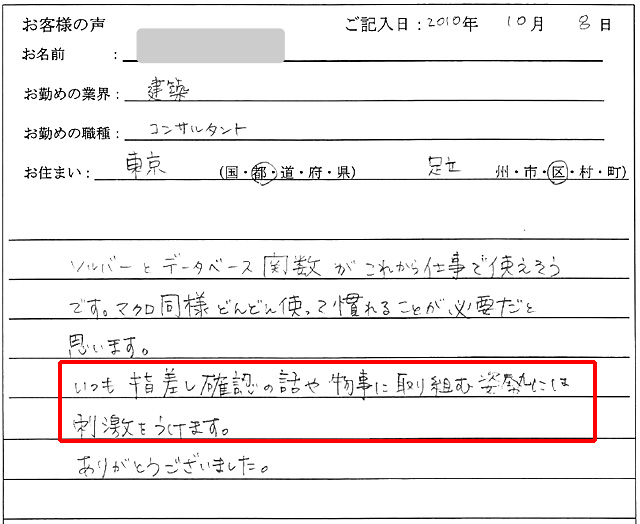 お客様の声 ご記入日：2010年 10月 8日
お名前 ：
お勤めの業界： 建築
お勤めの職種： コンサルタント
お住まい： 東京 （国・都・道・府・県） 足立 州・市・区・村・町）
ソルバーとデータベース関数がこれから仕事で使えそう
です。マクロ同様どんどん使って慣れることが必要だと
思います。
いつも指差し確認の話や物事に取り組む姿勢には
刺激をうけます。
ありがとうございました。